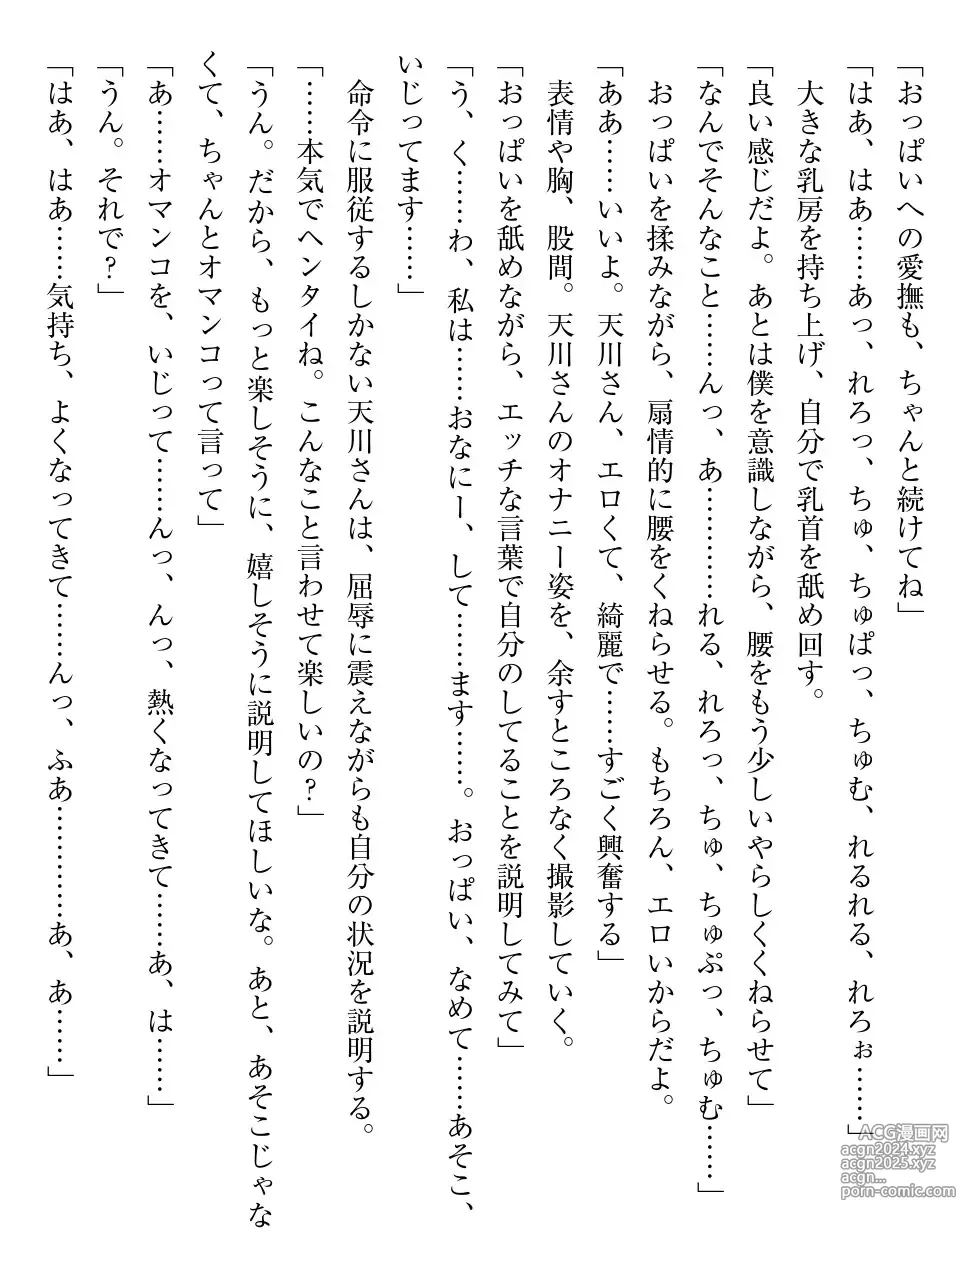 「おっぱいへの愛撫も、ちゃんと続けてね」
「はあ、はあ……あっ、れろっ、ちゅ、ちゅぱっ、ちゅむ、れるれる、れろぉ……」
　大きな乳房を持ち上げ、自分で乳首を舐め回す。
「良い感じだよ。あとは僕を意識しながら、腰をもう少しいやらしくくねらせて」
「なんでそんなこと……んっ、あ…………れる、れろっ、ちゅ、ちゅぷっ、ちゅむ……」
　おっぱいを揉みながら、扇情的に腰をくねらせる。もちろん、エロいからだよ。
「ああ……いいよ。天川さん、エロくて、綺麗で……すごく興奮する」
　表情や胸、股間。天川さんのオナニー姿を、余すところなく撮影していく。
「おっぱいを舐めながら、エッチな言葉で自分のしてることを説明してみて」
「う、く……わ、私は……おなにー、して……ます……。おっぱい、なめて……あそこ、
いじってます……」
　命令に服従するしかない天川さんは、屈辱に震えながらも自分の状況を説明する。
「……本気でヘンタイね。こんなこと言わせて楽しいの？」
「うん。だから、もっと楽しそうに、嬉しそうに説明してほしいな。あと、あそこじゃな
くて、ちゃんとオマンコって言って」
「あ……オマンコを、いじって……んっ、んっ、熱くなってきて……あ、は……」
「うん。それで？」
「はあ、はあ……気持ち、よくなってきて……んっ、ふあ…………あ、あ……」
ACG漫画网
acgn2024.xyz
acgn2025.xyz
acgn...
porn-comic.com